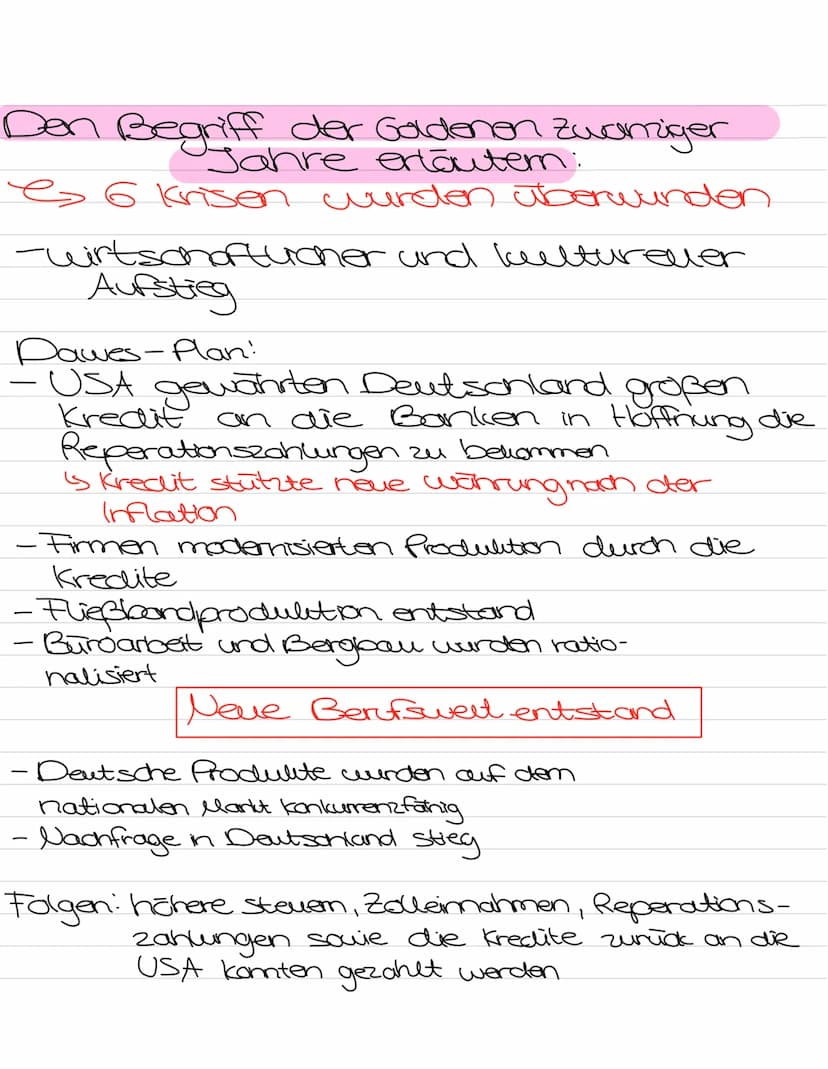 Den Begriff der Goldenen Zwanziger
Jahre erläutern:
↳ 6 Krisen wurden überwunden
- wirtschaftlicher und kultureller
Aufstieg
Dawes-Plan:
- USA gewährten Deutschland großen
Kredit an die Banken in Hoffnung die
Reperationszahlungen zu bekommen
↳ Kredit stützte neue Währung nach der
Inflation
- Firmen modernisierten Produktion durch die
Kredite
- Fließbandproduktion entstand
- Büroarbeit und Bergbau wurden ratio-
nalisiert
Neue Berufswelt entstand
- Deutsche Produkte wurden auf dem
nationalen Markt konkurrenzfähig
- Nachfrage in Deutschland stieg
Folgen: höhere Steuern, Zolleinnahmen, Reperations-
zahlungen sowie die Kredite zurück an die
USA konnten gezahlt werden